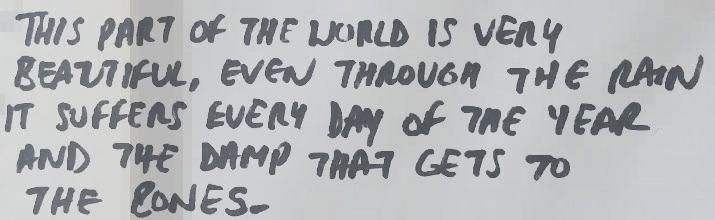 THIS PART OF THE WORLD IS VERY
BEAUTIFUL, EVEN THROUGH THE RAIN
IT SUFFERS EVERY DAY OF THE YEAR
AND THE DAMP THAT GETS TO
THE BONES-